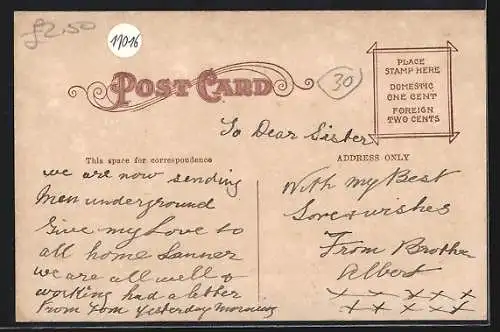 £2.50
17016
POST CARD
30
PLACE
STAMP HERE
DOMESTIC
ONE CENT
FOREIGN
TWO CENTS
To Dear Sister
This space for correspondence
ADDRESS ONLY
we are now sending
Men underground
Give my Love to
all home
we are all well &
working had a letter
From Tom yesterday Morning
With my Best
Love & wishes
From Brother
Albert
x x x x x
x x x x x